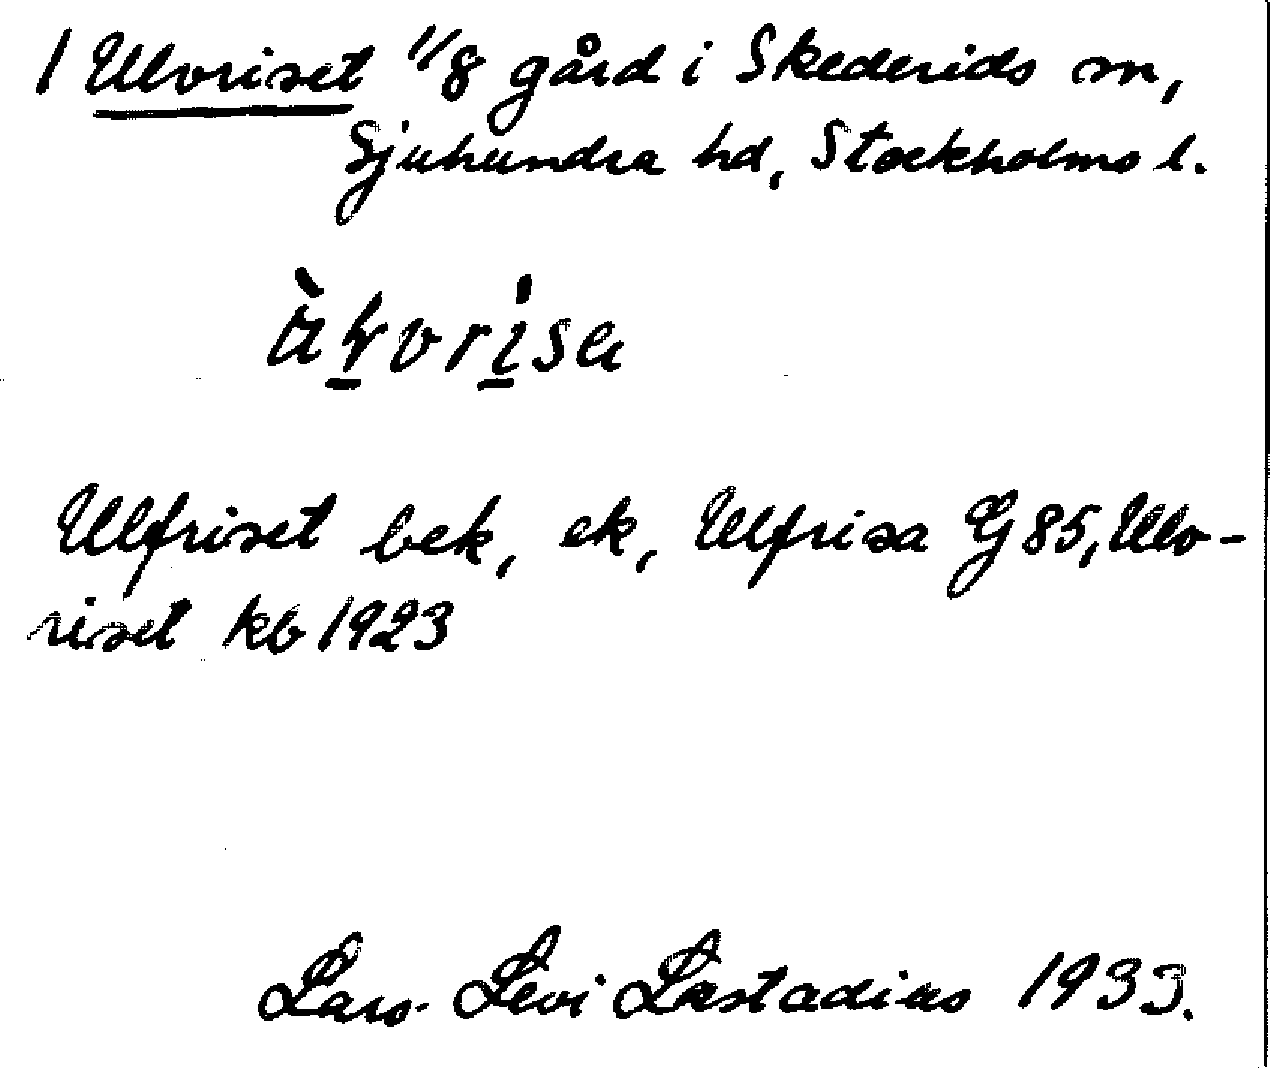 1 Ulvriset 1/8 gård i Skederids sn,
Sjuhundra hd, Stockholms l.
Ulfriset bek, ek, Ulfrisa G 85, Ulv-
riset kb 1923
Lars Levi Læstadius 1933.